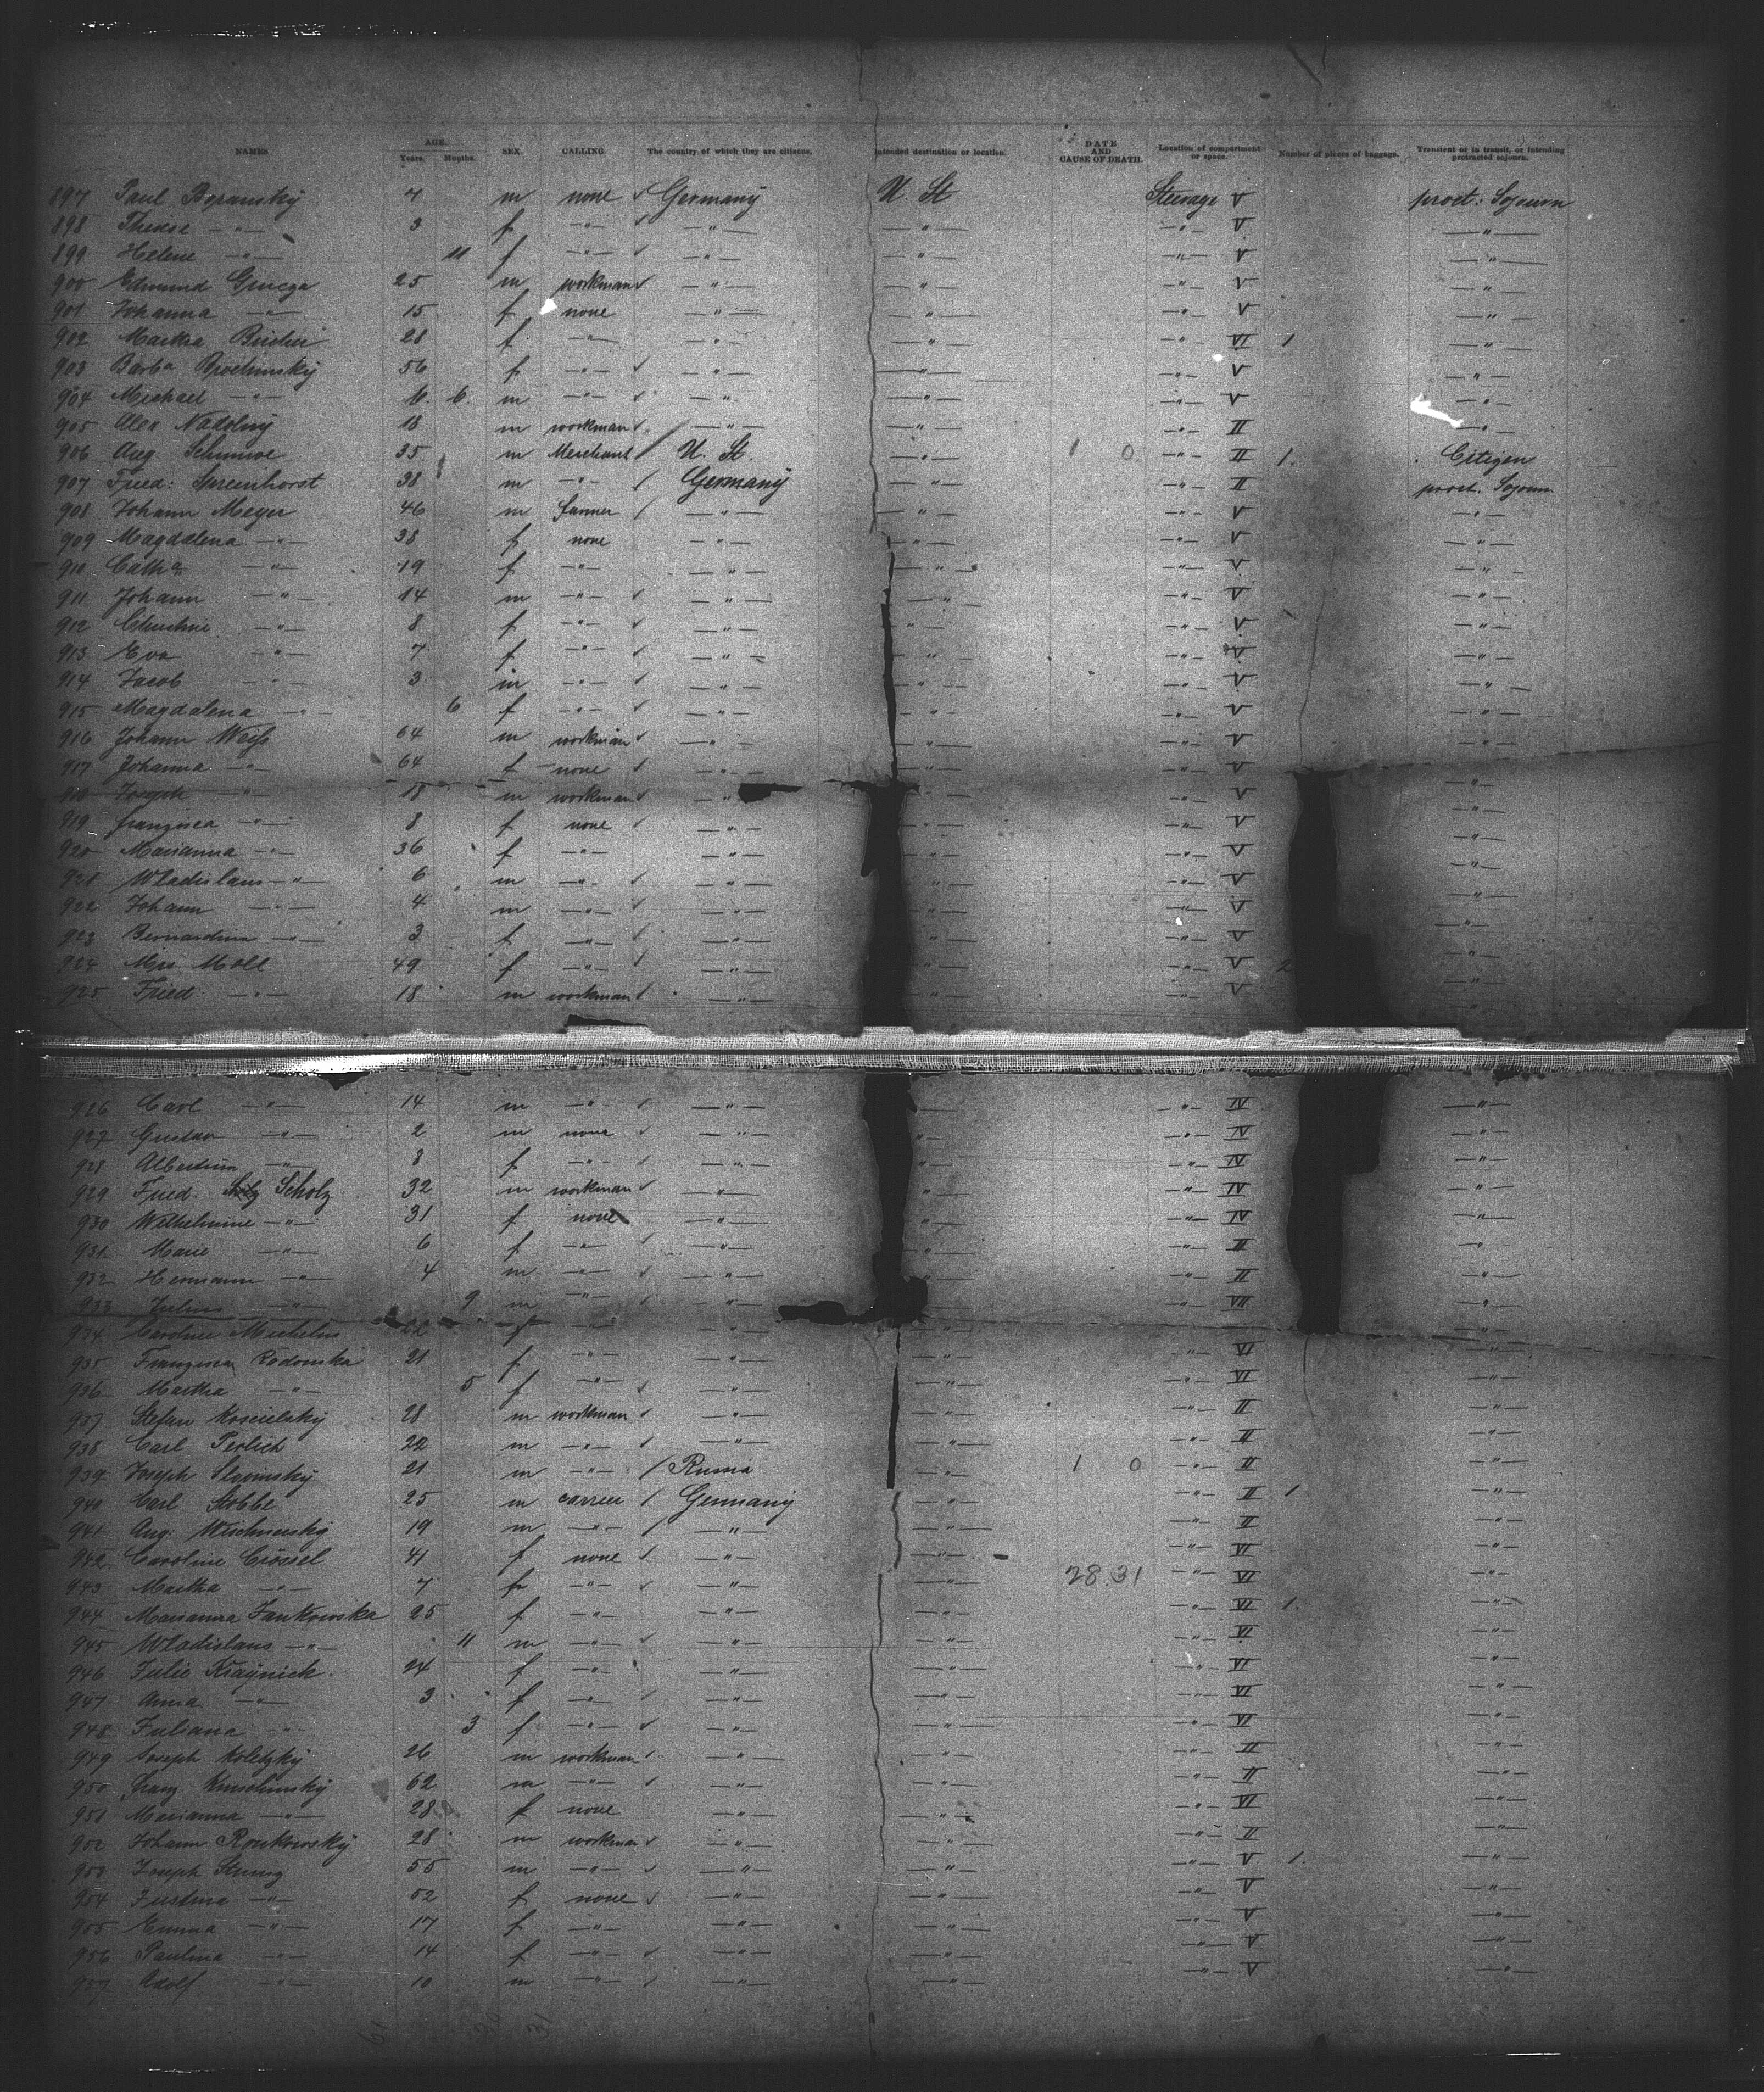 NAMES AGE. Years. Months. SEX. CALLING. The country of which they are citizens. Intended destination or location. DATE AND CAUSE OF DEATH. Location of compartment or space. Number of pieces of baggage. Transient or in transit, or intending protracted sojourn.
897 Paul 4 m none ✓ Germany U. St Steerage V prot: Sojourn
898 Therese —"— 3 f —"— ✓ —"— —"— —"— V —"—
899 Helene —"— 11 f —"— ✓ —"— —"— —"— V —"—
900 Edmund 25 m workman ✓ —"— —"— —"— V —"—
901 Johanna —"— 15 f none —"— —"— —"— V —"—
902 Martha 28 f —"— —"— —"— —"— VI 1 —"—
903 Barba 56 f —"— ✓ —"— —"— —"— V —"—
904 Michael —"— 6. m —"— ✓ —"— —"— —"— V —"—
905 Alex Nadolny 18 m workman ✓ —"— —"— —"— II —"—
906 Aug. 35 m Merchant / U. St. —"— 1 0 —"— II 1. Citizen
907 Fried: 38 m —"— / Germany —"— —"— II prot. Sojourn
908 Johann Meyer 46 m farmer / —"— —"— —"— V —"—
909 Magdalena —"— 38 f none —"— —"— —"— V —"—
910 Catha —"— 19 f —"— —"— —"— —"— V —"—
911 Johann —"— 14 m —"— ✓ —"— —"— —"— V —"—
912 Christine —"— 8 f —"— ✓ —"— —"— —"— V —"—
913 Eva —"— 7 f —"— ✓ —"— —"— —"— V —"—
914 Jacob —"— 3 m —"— ✓ —"— —"— —"— V —"—
915 Magdalena —"— 6 f —"— ✓ —"— —"— —"— V —"—
916 Johann Weiss 64 m workman ✓ —"— —"— —"— V —"—
917 Johanna —"— 64 f none ✓ —"— —"— —"— V —"—
918 Joseph —"— 18 m workman ✓ —"— —"— —"— V —"—
919 Franzisca —"— 8 f none ✓ —"— —"— —"— V —"—
920 Marianna —"— 36 f —"— —"— —"— —"— V —"—
921 Wladislaus —"— 6 m —"— ✓ —"— —"— —"— V —"—
922 Johann —"— 4 m —"— ✓ —"— —"— —"— V —"—
923 Bernardina —"— 3 f —"— ✓ —"— —"— —"— V —"—
924 Mrs Moll 49 f —"— ✓ —"— —"— —"— V 2 —"—
925 Fried: —"— 18 m workman ✓ —"— —"— —"— V —"—
926 Carl —"— 14 m —"— ✓ —"— —"— —"— IV —"—
927 Gustav —"— 2 m none ✓ —"— —"— —"— IV —"—
928 Albertine —"— 8 f —"— ✓ —"— —"— —"— IV —"—
929 Fried. Scholz 32 m workman ✓ —"— —"— —"— IV —"—
930 Wilhelmine —"— 31 f none —"— —"— —"— IV —"—
931 Marie —"— 6 f —"— ✓ —"— —"— —"— —"—
932 Hermann —"— 4 m —"— ✓ —"— —"— —"— —"—
933 Julius —"— 9 m —"— ✓ —"— —"— VII —"—
934 Caroline 22 f —"— —"— —"— —"—
935 Franzisca Radomska 21 f —"— —"— —"— —"— VI —"—
936 Martha —"— 5 f —"— ✓ —"— —"— —"— VI —"—
937 Stefan Koscielsky 28 m workman ✓ —"— —"— —"— II —"—
938 Carl 22 m —"— ✓ —"— —"— —"— II —"—
939 Joseph 21 m —"— / Russia —"— 1 0 —"— II —"—
940 Carl Stobbe 25 m / Germany —"— —"— II 1 —"—
941 Aug: 19 m —"— / —"— —"— —"— II —"—
942 Caroline Crössel 41 f none ✓ —"— —"— —"— VI —"—
943 Martha —"— 7 f —"— ✓ —"— —"— 28.31 —"— VI —"—
944 Marianna Jankowska 25 f —"— —"— —"— —"— VI 1. —"—
945 Wladislaus —"— 11 m —"— ✓ —"— —"— —"— VI —"—
946 Julie 24 f —"— —"— —"— —"— VI —"—
947 Anna —"— 3 f —"— ✓ —"— —"— —"— VI —"—
948 Juliana —"— 3 f —"— ✓ —"— —"— —"— VI —"—
949 Joseph Koletzky 26 m workman ✓ —"— —"— —"— II —"—
950 Franz 62 m —"— ✓ —"— —"— —"— II —"—
951 Marianna —"— 28 f none —"— —"— —"— VI —"—
952 Johann Ronkowsky 28 m workman ✓ —"— —"— —"— II —"—
953 Joseph 55 m —"— ✓ —"— —"— —"— V 1. —"—
954 Justina —"— 52 f none ✓ —"— —"— —"— V —"—
955 Emma —"— 17 f —"— —"— —"— —"— V —"—
956 Paulina —"— 14 f —"— ✓ —"— —"— —"— V —"—
957 Adolf —"— 10 m —"— ✓ —"— —"— —"— V —"—